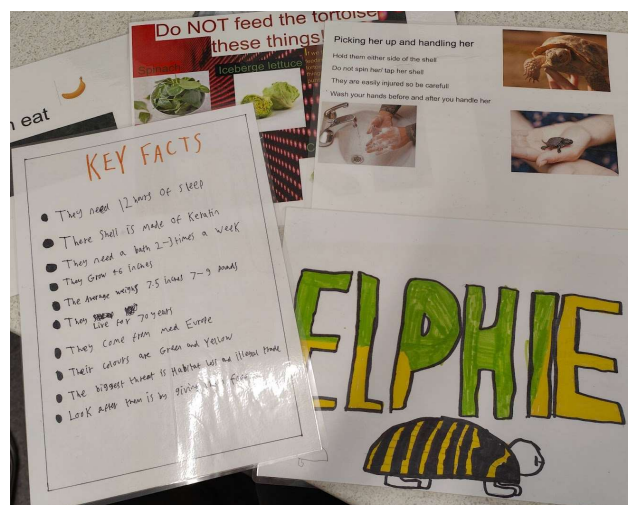 Do NOT feed the tortoise
these things!
Spinach
Iceberge lettuce
eat
Picking her up and handling her
Hold them either side of the shell
Do not spin her/ tap her shell
They are easily injured so be carefull
Wash your hands before and after you handle her
KEY FACTS
They need 12 hours of sleep
There Shell is made of Keratin
They need a bath 2-3 times a week
They Grow +6 inches
The average weighs 7.5 inches 7-9 pounds
They Live for 70 years
They come from med Europe
Their colours are Green and Yellow
The biggest threat is Habitat loss and illegal trade
Look after them is by giving
ELPHIE